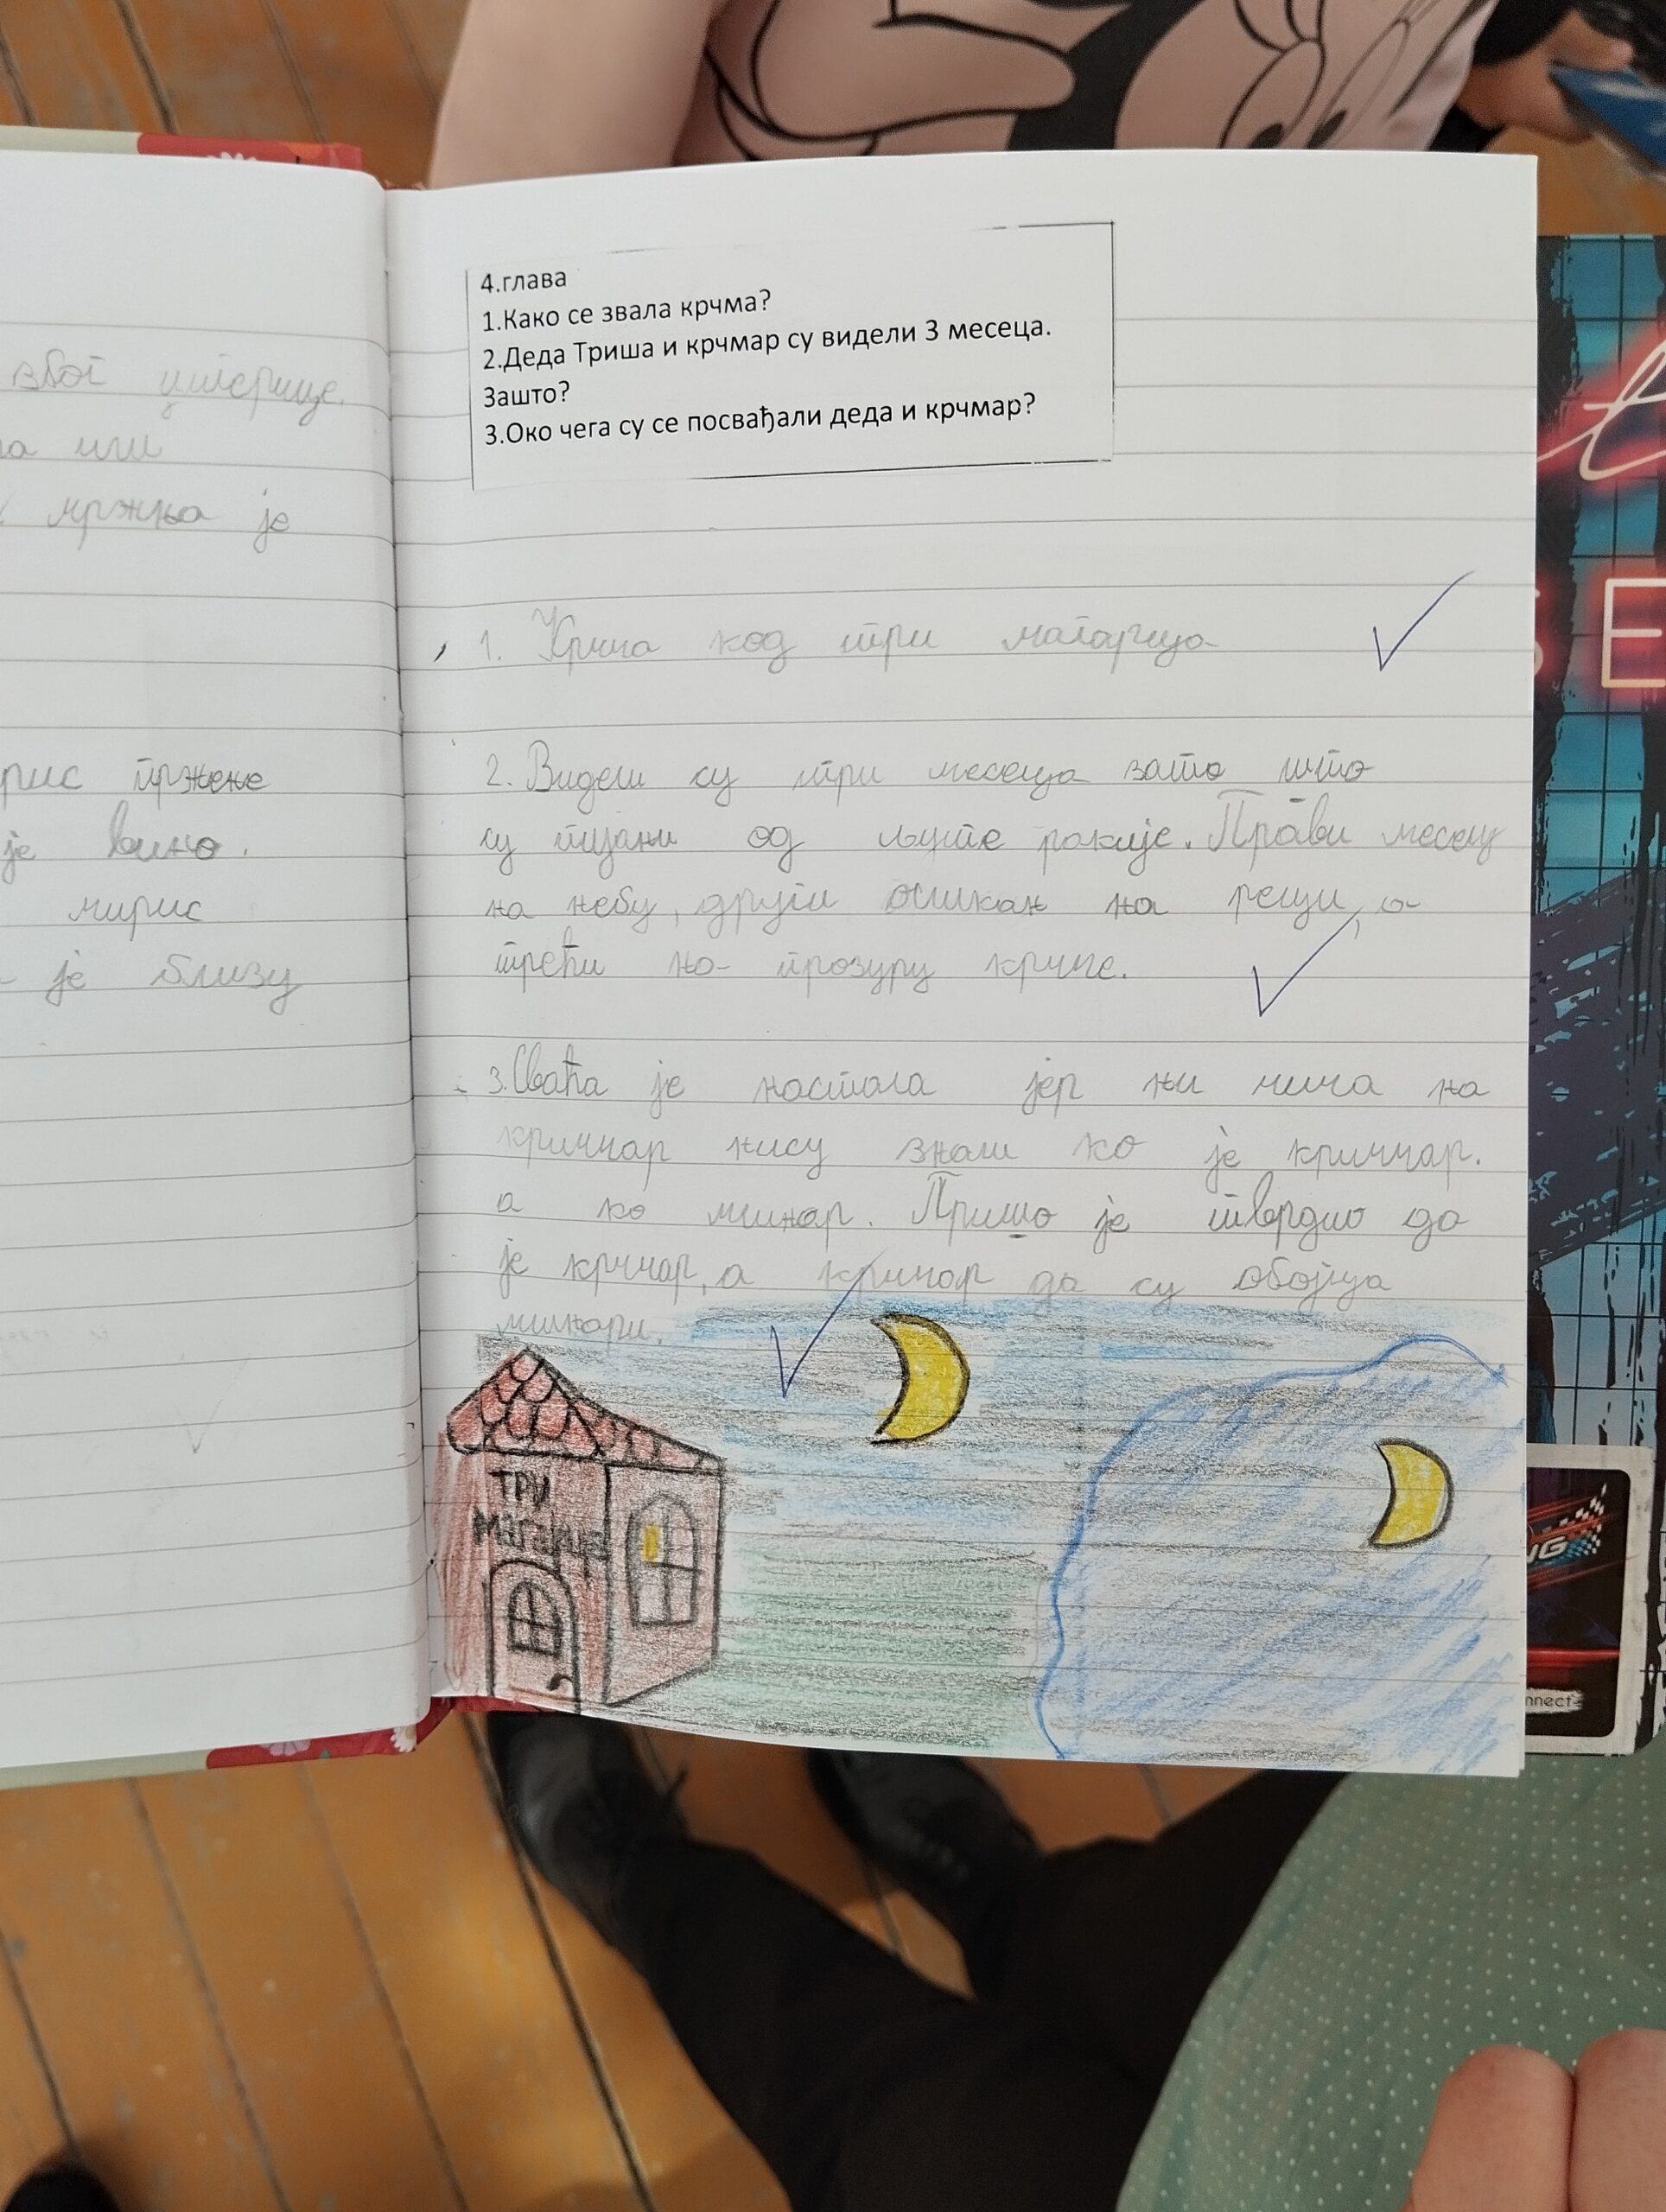 због цитерице.
или
мржња је
рис пржене
је вино.
мирис
је близу
4.глава
1.Како се звала крчма?
2.Деда Триша и крчмар су видели 3 месеца.
Зашто?
3.Око чега су се посвађали деда и крчмар?
1. Крчма код три магарца
2. Видели су три месеца зато што
су пијани од љуте ракије. Прави месец
на небу, други осликан на реци, а
трећи на прозору крчме.
3. Свађа је настала јер ни чича на
кричмар нису знали ко је кричмар.
а ко млинар. Тришо је тврдио да
је крчмар, а кричмар да су обојица
млинари.
ТРИ
МАГАРЦА
SE
NG
nnect